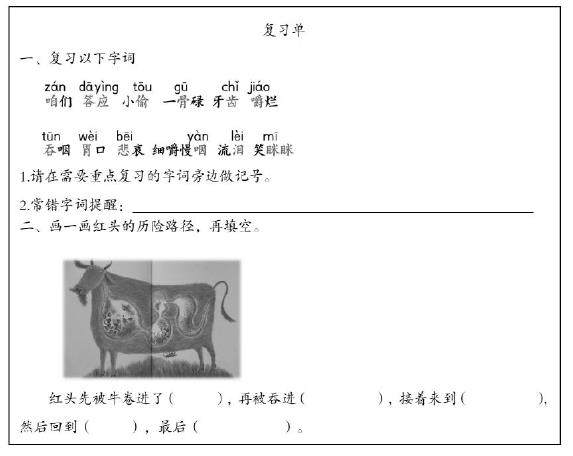 复习单
一、复习以下字词
zán dāyìng tōu gū chǐ jiáo
咱们 答应 小偷 一骨碌 牙齿 嚼烂
tūn wèi bēi yàn lèi mī
吞咽 胃口 悲哀 细嚼慢咽 流泪 笑眯眯
1.请在需要重点复习的字词旁边做记号。
2.常错字词提醒：
二、画一画红头的历险路径，再填空。
红头先被牛卷进了（ ），再被吞进（ ），接着来到（ ），
然后回到（ ），最后（ ）。